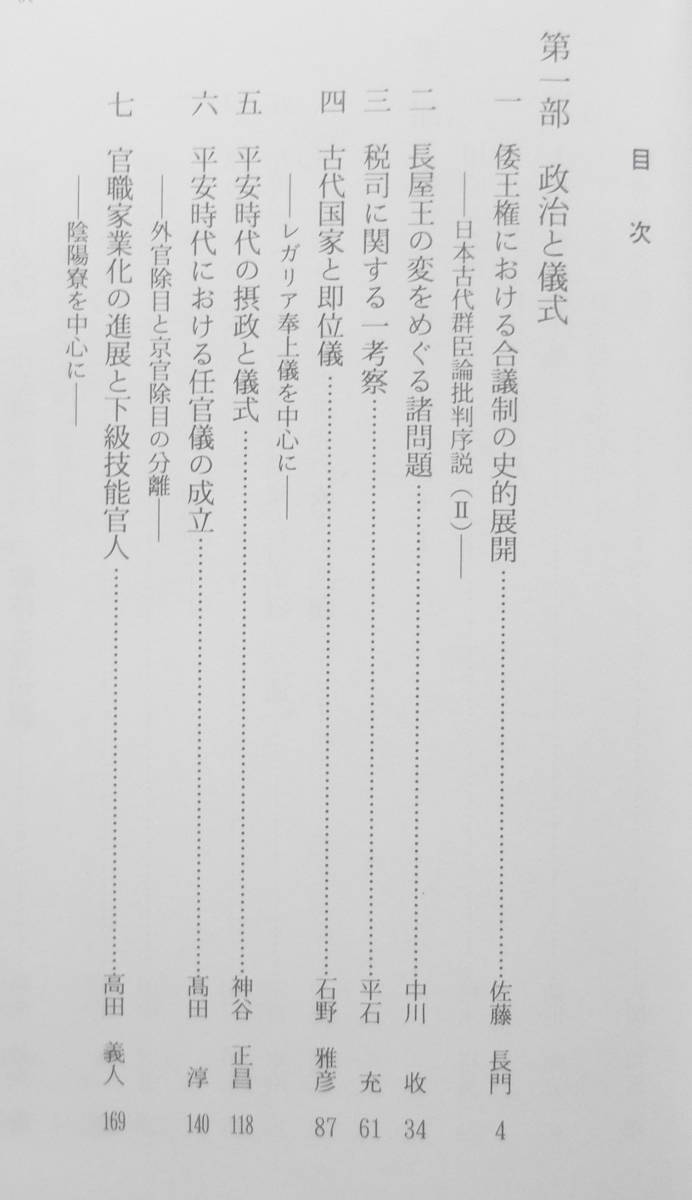 目次
第一部 政治と儀式
一 倭王権における合議制の史的展開……佐藤 長門 4
――日本古代群臣論批判序説(Ⅱ)――
二 長屋王の変をめぐる諸問題……中川 收 34
三 税司に関する一考察……平石 充 61
四 古代国家と即位儀……石野 雅彦 87
――レガリア奉上儀を中心に――
五 平安時代の摂政と儀式……神谷 正昌 118
六 平安時代における任官儀の成立……髙田 淳 140
――外官除目と京官除目の分離――
七 官職家業化の進展と下級技能官人……高田 義人 169
――陰陽寮を中心に――